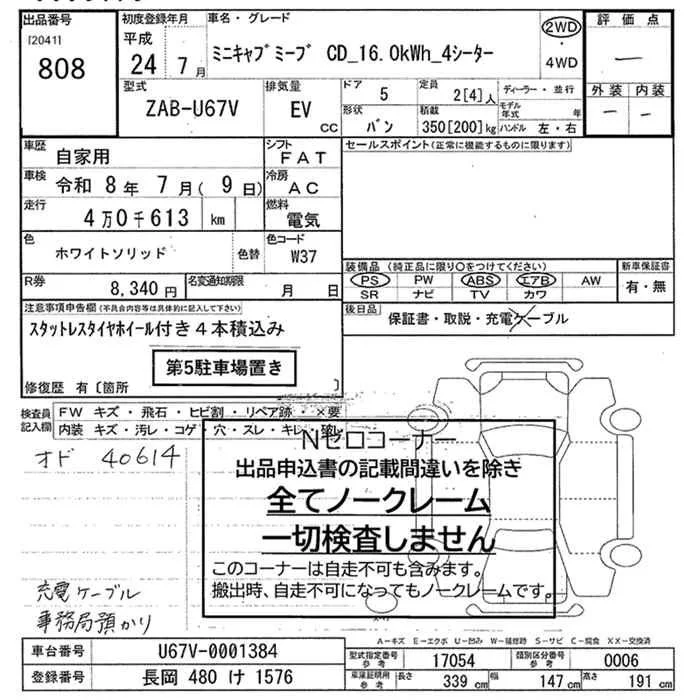 出品番号
[2041]
808
初度登録年月
平成
24 7月
車名・グレード
ミニキャブ ミーブ CD_16.0kWh_4シーター
2WD
・
4WD
評価点
―
外装 内装
― ―
型式
ZAB-U67V
排気量
EV
CC
ドア 5
定員 2[4]人
ディーラー・並行
形状 バン
積載 350[200]kg
モデル年式 年
ハンドル 左・右
車歴 自家用
シフト FAT
車検 令和 8年 7月( 9日)
冷房 AC
走行 4万0千613 km
燃料 電気
色 ホワイトソリッド
色替
色コード W37
R券 8,340円
名変通知期限 月 日
セールスポイント(正常に機能するものに限ります)
装備品(純正品に限り○をつけてください)
新車保証書
PS PW ABS エアB AW
SR ナビ TV カワ
有・無
後日品 保証書・取説・充電ケーブル
注意事項申告欄(不具合内容等は具体的に記入して下さい)
スタットレスタイヤホイール付き4本積込み
第5駐車場置き
修復歴 有〔箇所 〕
検査員記入欄
FW キズ・飛石・ヒビ割・リペア跡・×要
内装 キズ・汚レ・コゲ・穴・スレ・キレ・破レ
オド 40614
Nゼロコーナー
出品申込書の記載間違いを除き
全てノークレーム
一切検査しません
このコーナーは自走不可も含みます。
搬出時、自走不可になってもノークレームです。
充電ケーブル
事務局預かり
A-キズ E-エクボ U-凹み W-補修跡 S-サビ C-腐食 XX-交換済
車台番号 U67V-0001384
型式指定番号 参考 17054
類別区分番号 参考 0006
登録番号 長岡 480 け 1576
車庫証明用 参考
長さ 339 cm
幅 147 cm
高さ 191 cm